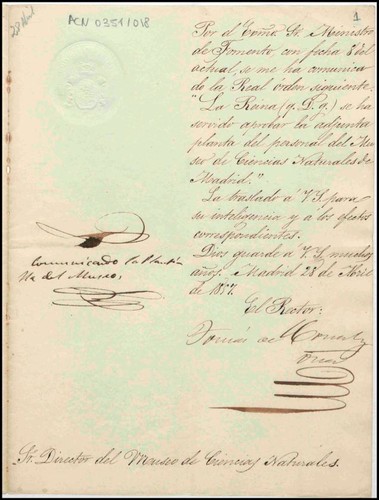 28 Abril
ACN 0351/018
1
Por el Excmo Sr. Ministro
de Fomento, con fecha 8 del
actual, se me comunica
de la Real órden siguiente:
"La Reina (q. D. g.) se ha
servido aprobar la adjunta
planta del personal del Mu-
seo de Ciencias Naturales de
Madrid."
La traslado á V.S. para
su inteligencia y á los efectos
correspondientes.
Dios guarde á V.S. muchos
años. Madrid 28 de Abril
de 1857.
El Rector:
Tomás de
Comunicado la Planti
lla del Museo,
Sr. Director del Museo de Ciencias Naturales.